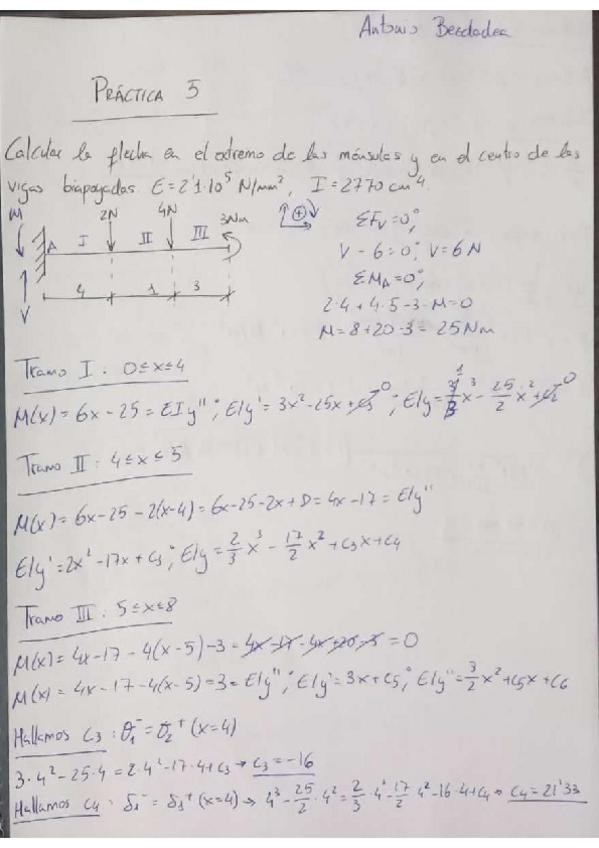 Antonio
PRÁCTICA 5
Calcular la flecha en el extremo de las ménsulas y en el centro de las
vigas biapoyadas. E=2'1·10⁵ N/mm², I=2770 cm⁴.
M 2N 4N 3Nm
A I II III
4 1 3
V
ΣFv=0;
V - 6=0; V=6N
ΣM_A=0;
2·4+4·5-3-M=0
M=8+20-3=25Nm
Tramo I: 0≤x≤4
M(x)=6x-25=EIy''; EIy'=3x²-25x+C₁ 0; EIy=3/3 1 x³-25/2 x²+C₂ 0
Tramo II: 4≤x≤5
M(x)=6x-25-2(x-4)=6x-25-2x+8=4x-17=EIy''
EIy'=2x²-17x+C₃; EIy=2/3 x³-17/2 x²+C₃x+C₄
Tramo III: 5≤x≤8
M(x)=4x-17-4(x-5)-3=4x-17-4x+20-3=0
M(x)=4x-17-4(x-5)=3=EIy''; EIy'=3x+C₅; EIy''=3/2 x²+C₅x+C₆
Hallamos C₃: θ₁⁻=θ₂⁺ (x=4)
3·4²-25·4=2·4²-17·4+C₃→C₃=-16
Hallamos C₄: δ₁⁻=δ₁⁺ (x=4)→4³-25/2·4²=2/3·4³-17/2 4²-16·4+C₄→C₄=21'33